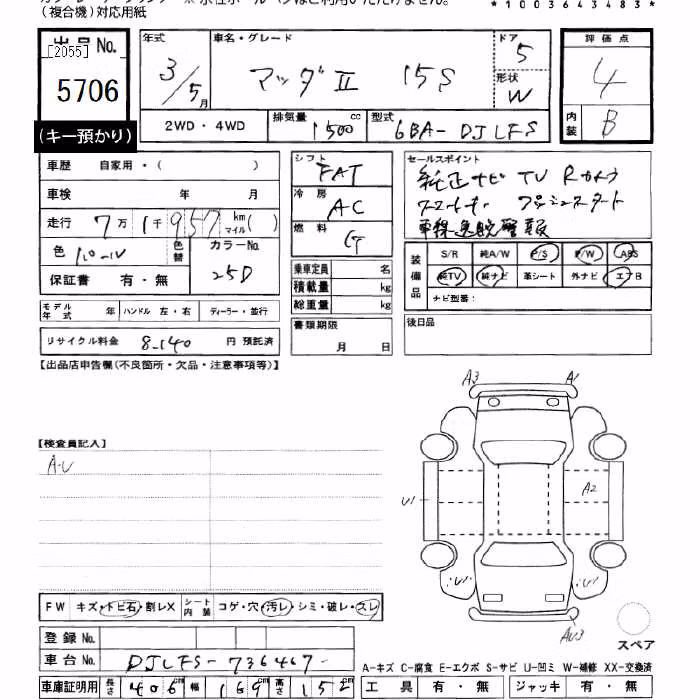 (複合機)対応用紙
*1003643483*
出品No.
[2055]
5706
(キー預かり)
年式
3/5月
車名・グレード
マツダⅡ 15S
ドア
5
形状
W
評価点
4
内装
B
2WD・4WD
排気量
1500cc
型式
6BA-DJLFS
車歴 自家用・( )
車検 年 月
走行 7万1千957 km マイル( )
色
色替
カラーNo.
25D
保証書 有・無
モデル年式 年 ハンドル 左・右 ディーラー・並行
リサイクル料金 8,140 円 預託済
シフト
FAT
冷房
AC
燃料
G
乗車定員 名
積載量 kg
総重量 kg
書類期限
月 日
セールスポイント
純正ナビ TV Rカメラ
スマートキー プッシュスタート
車線逸脱警報
装備品
S/R 純A/W P/S P/W ABS
純TV 純ナビ 革シート 外ナビ エアB
ナビ型番:
後日品
【出品店申告欄(不良箇所・欠品・注意事項等)】
【検査員記入】
A・U
A3 A1
U1 A2
U1 U1
AU3
スペア
FW キズ・トビ石・割レX シート内装 コゲ・穴・汚レ・シミ・破レ・スレ
登録No.
車台No. DJLFS-736467-
車庫証明用 長さ 406 幅 169 高さ 152
A-キズ C-腐食 E-エクボ S-サビ U-凹ミ W-補修 XX-交換済
工具 有・無 ジャッキ 有・無